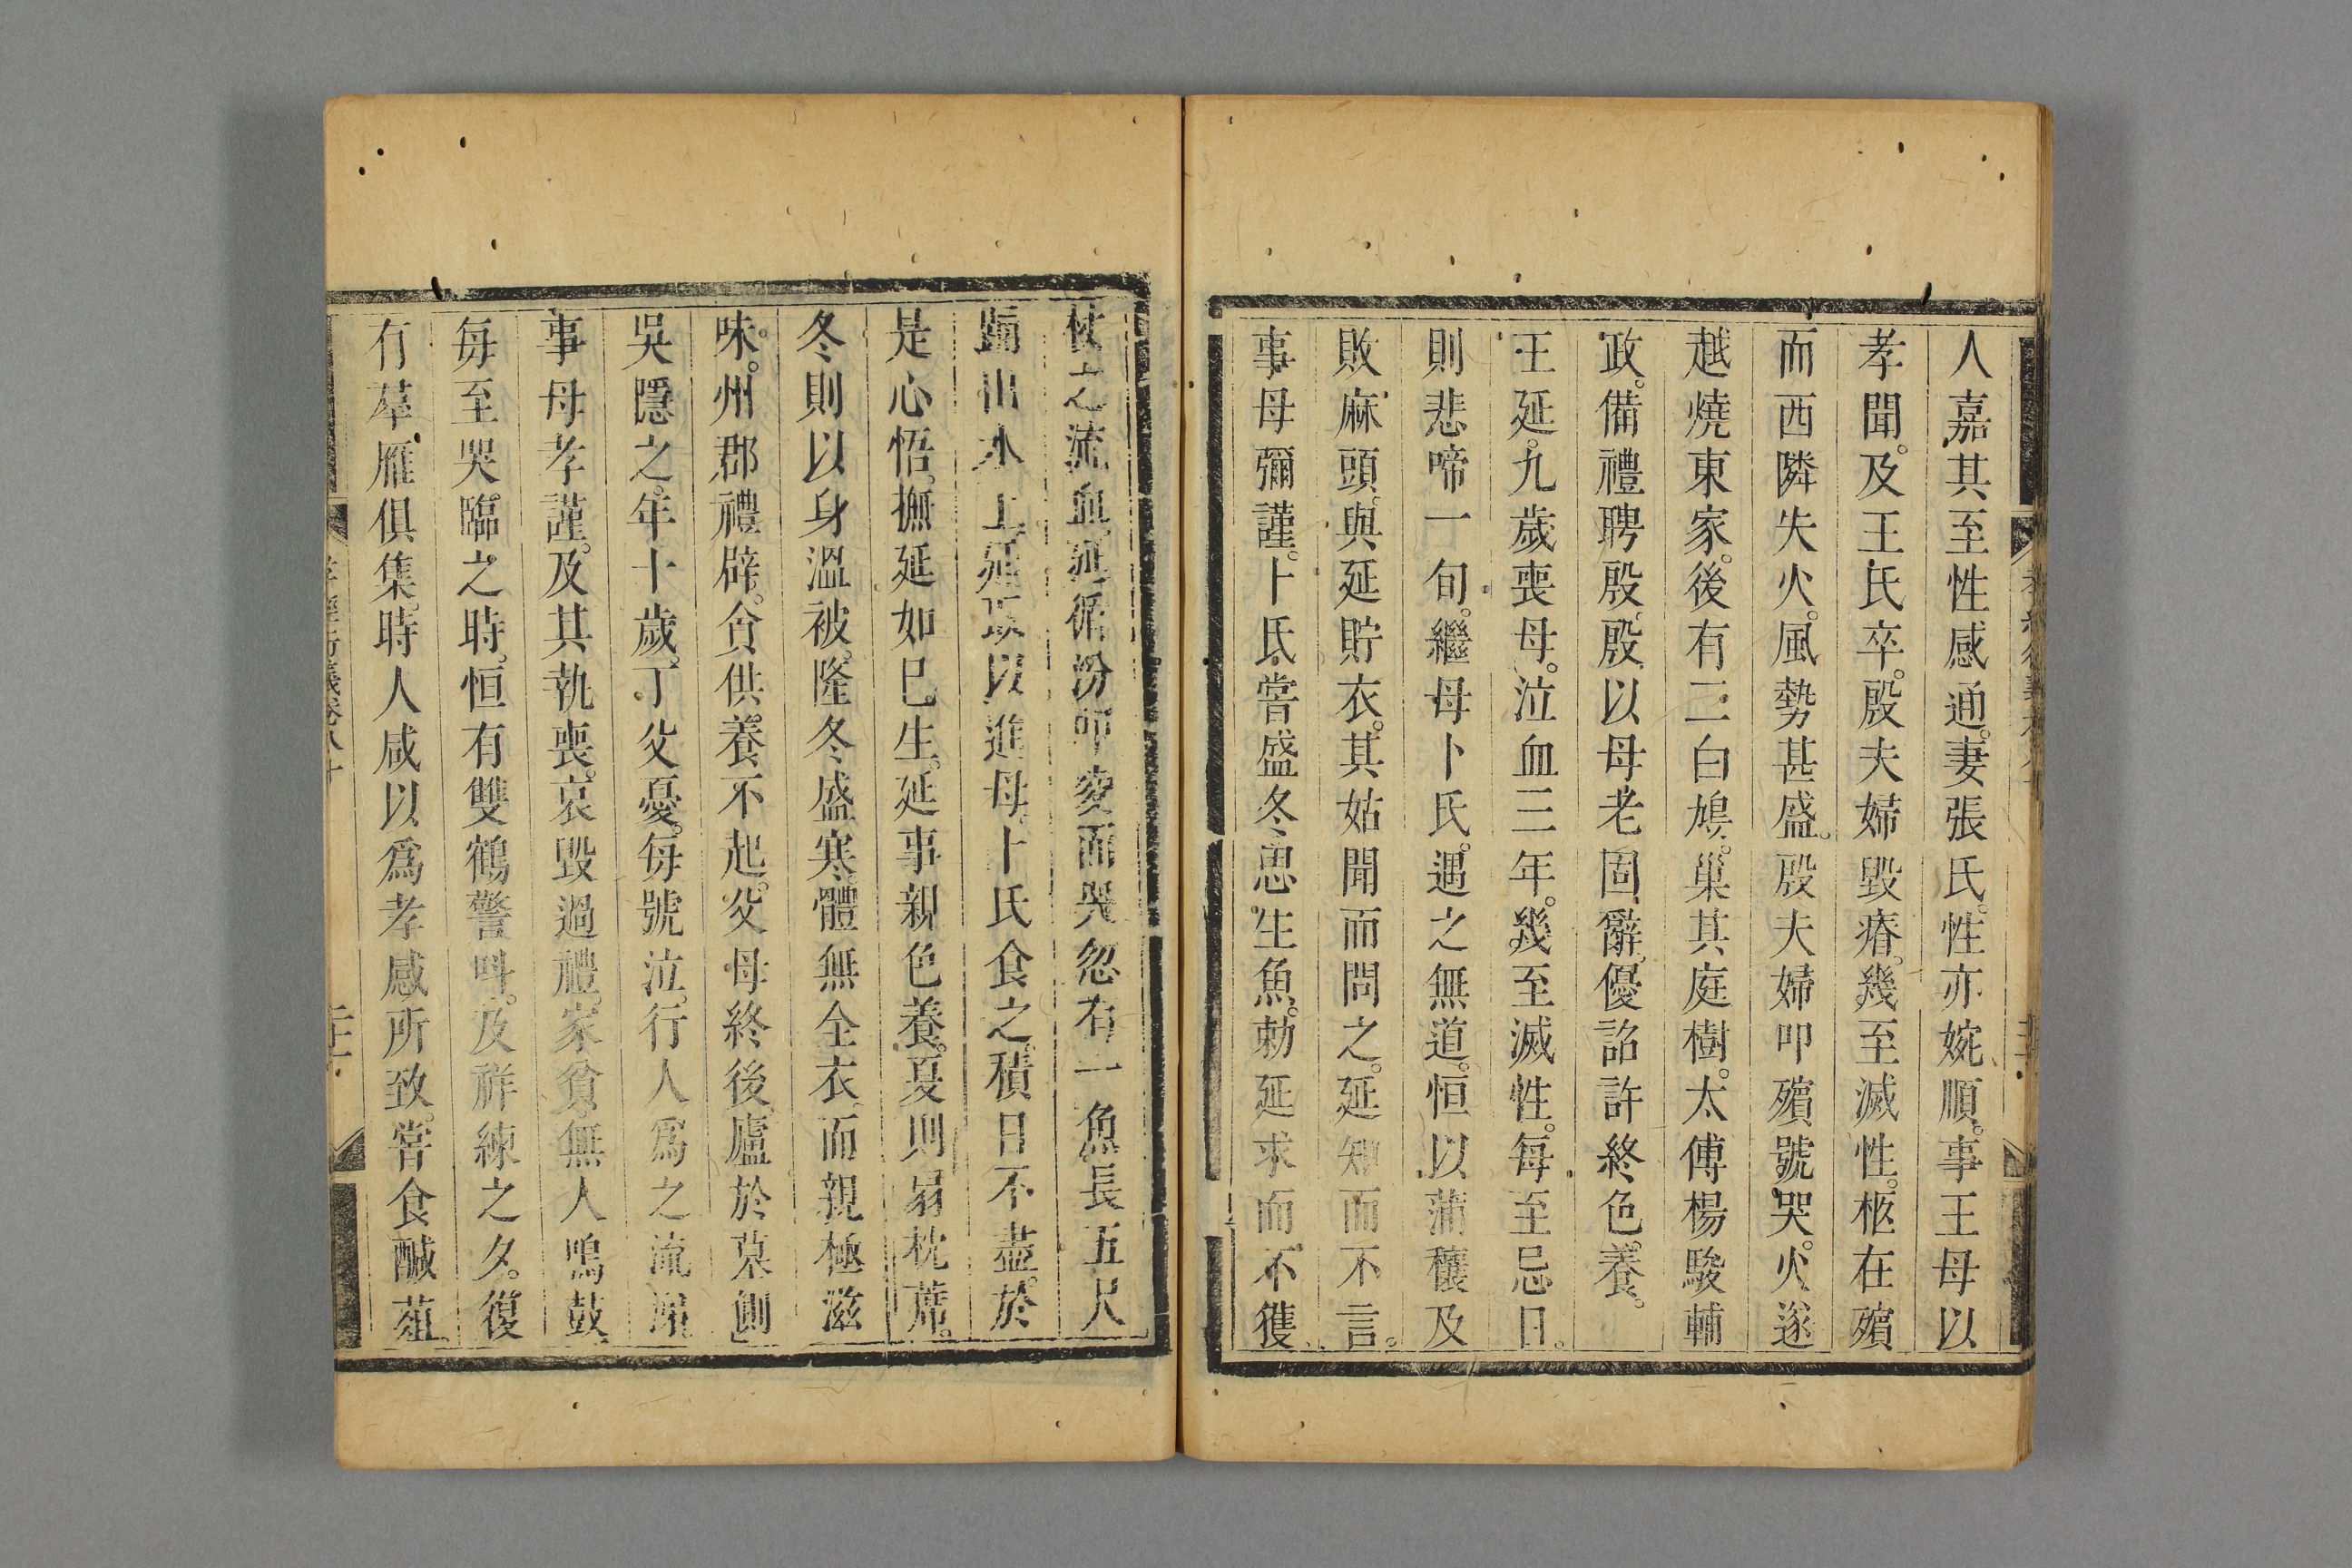 人嘉其至性感通。妻張氏。性亦婉順。事王母以
孝聞。及王氏卒。殷夫婦毀瘠。幾至滅性。柩在殯
而西隣失火。風勢甚盛。殷夫婦叩殯號哭。火遂
越燒東家。後有二白鳩。巢其庭樹。太傅楊駿輔
政。備禮聘殷。殷以母老固辭。優詔許終色養。
王延。九歲喪母。泣血三年。幾至滅性。每至忌日。
則悲啼一旬。繼母卜氏。遇之無道。恒以蒲穰及
敗麻頭。與延貯衣。其姑聞而問之。延知而不言。
事母彌謹。卜氏嘗盛冬思生魚。勅延求而不獲。
杖之流血。延循汾叩凌而哭。忽有一魚長五尺
踊出冰上。延取以進母。卜氏食之。積日不盡。於
是心悟。撫延如己生。延事親色養。夏則扇枕蓆。
冬則以身溫被。隆冬盛寒。體無全衣。而親極滋
味。州郡禮辟。貪供養不起。父母終後。廬於墓側
吳隱之。年十歲。丁父憂。每號泣。行人爲之流涕
事母孝謹。及其執喪。哀毀過禮。家貧無人鳴鼓。
每至哭臨之時。恒有雙鶴警叫。及祥練之夕。復
有羣雁俱集。時人咸以爲孝感所致。嘗食鹹葅。
孝經衍義卷八十